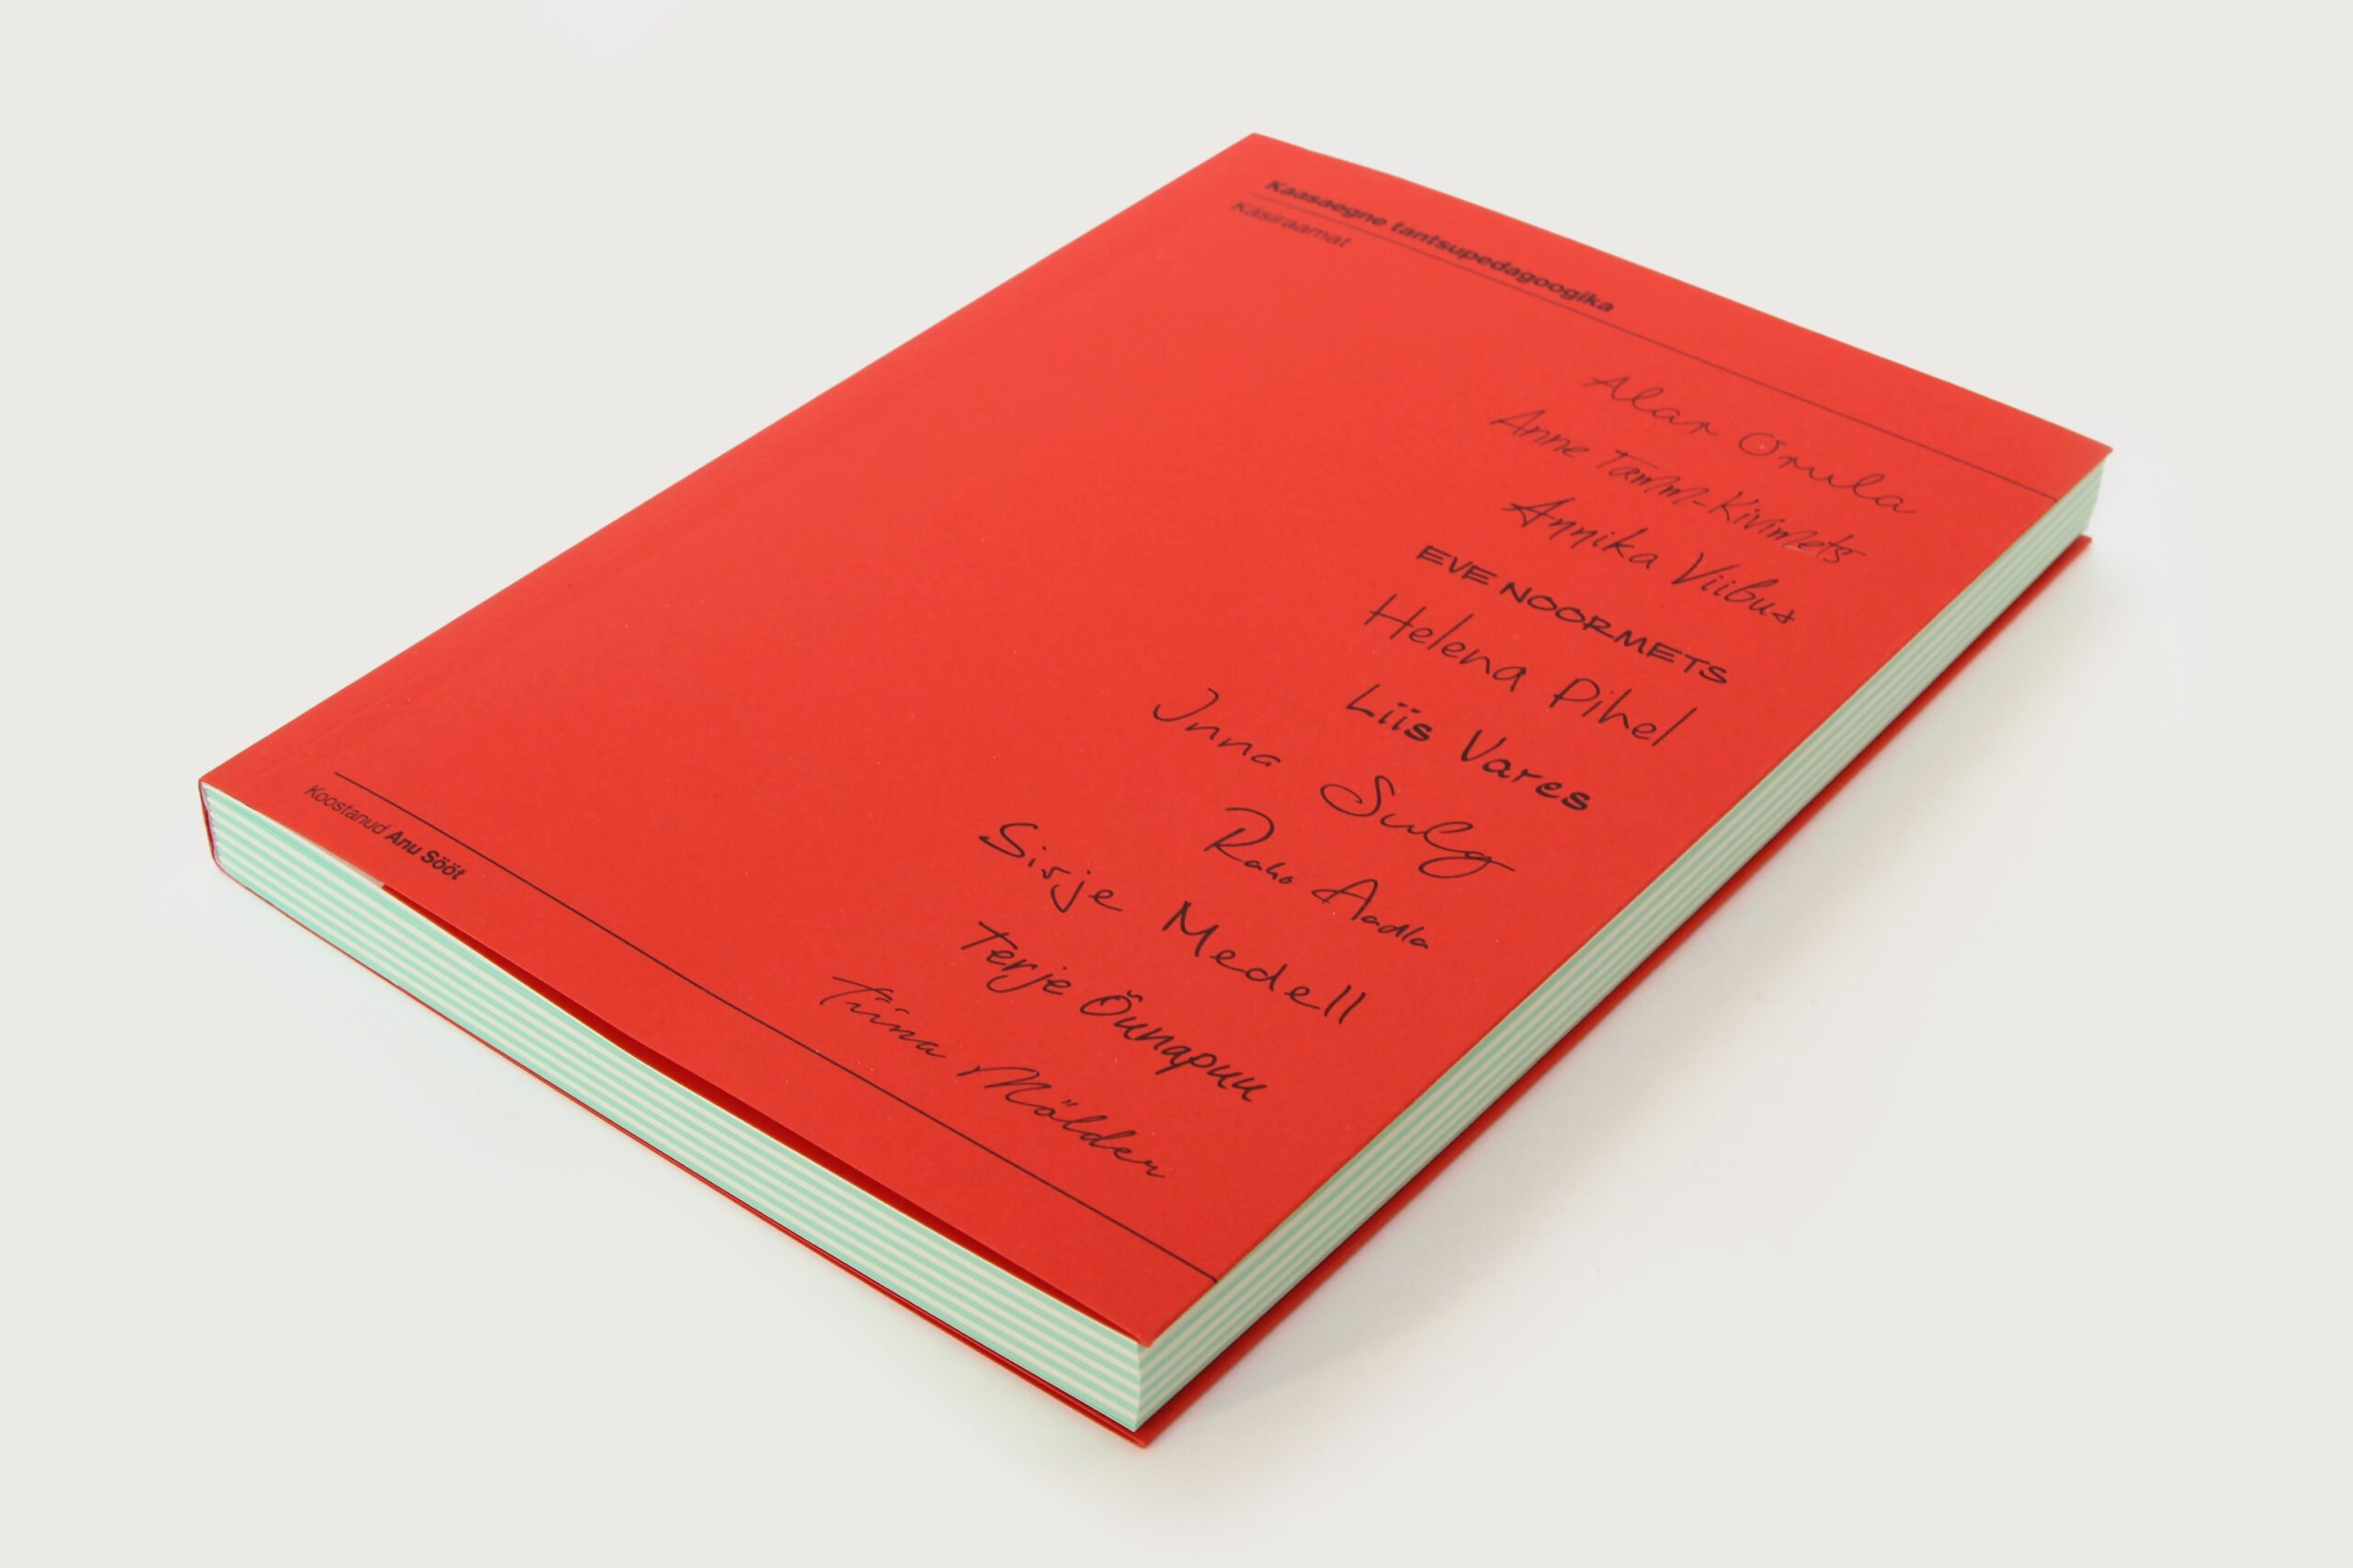 Kaasaegne tantsupedagoogika
Käsiraamat
Alar Orula
Anne Tamm-Kivimets
Annika Viibus
EVE NOORMETS
Helena Pihel
Liis Vares
Inna Sulg
Raho Aadla
Sirje Medell
Terje Õunapuu
Tiina Mölder
Koostanud Anu Sööt